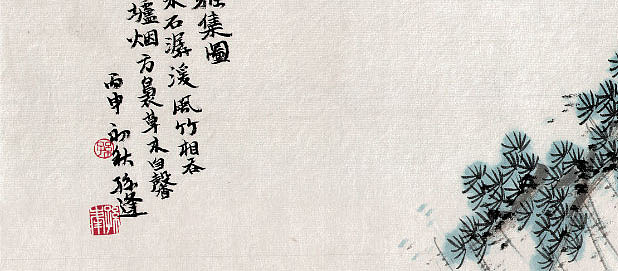 雅集圖
水石潺湲風竹相吞
壚烟方裊草木自馨
丙申初秋孫逢